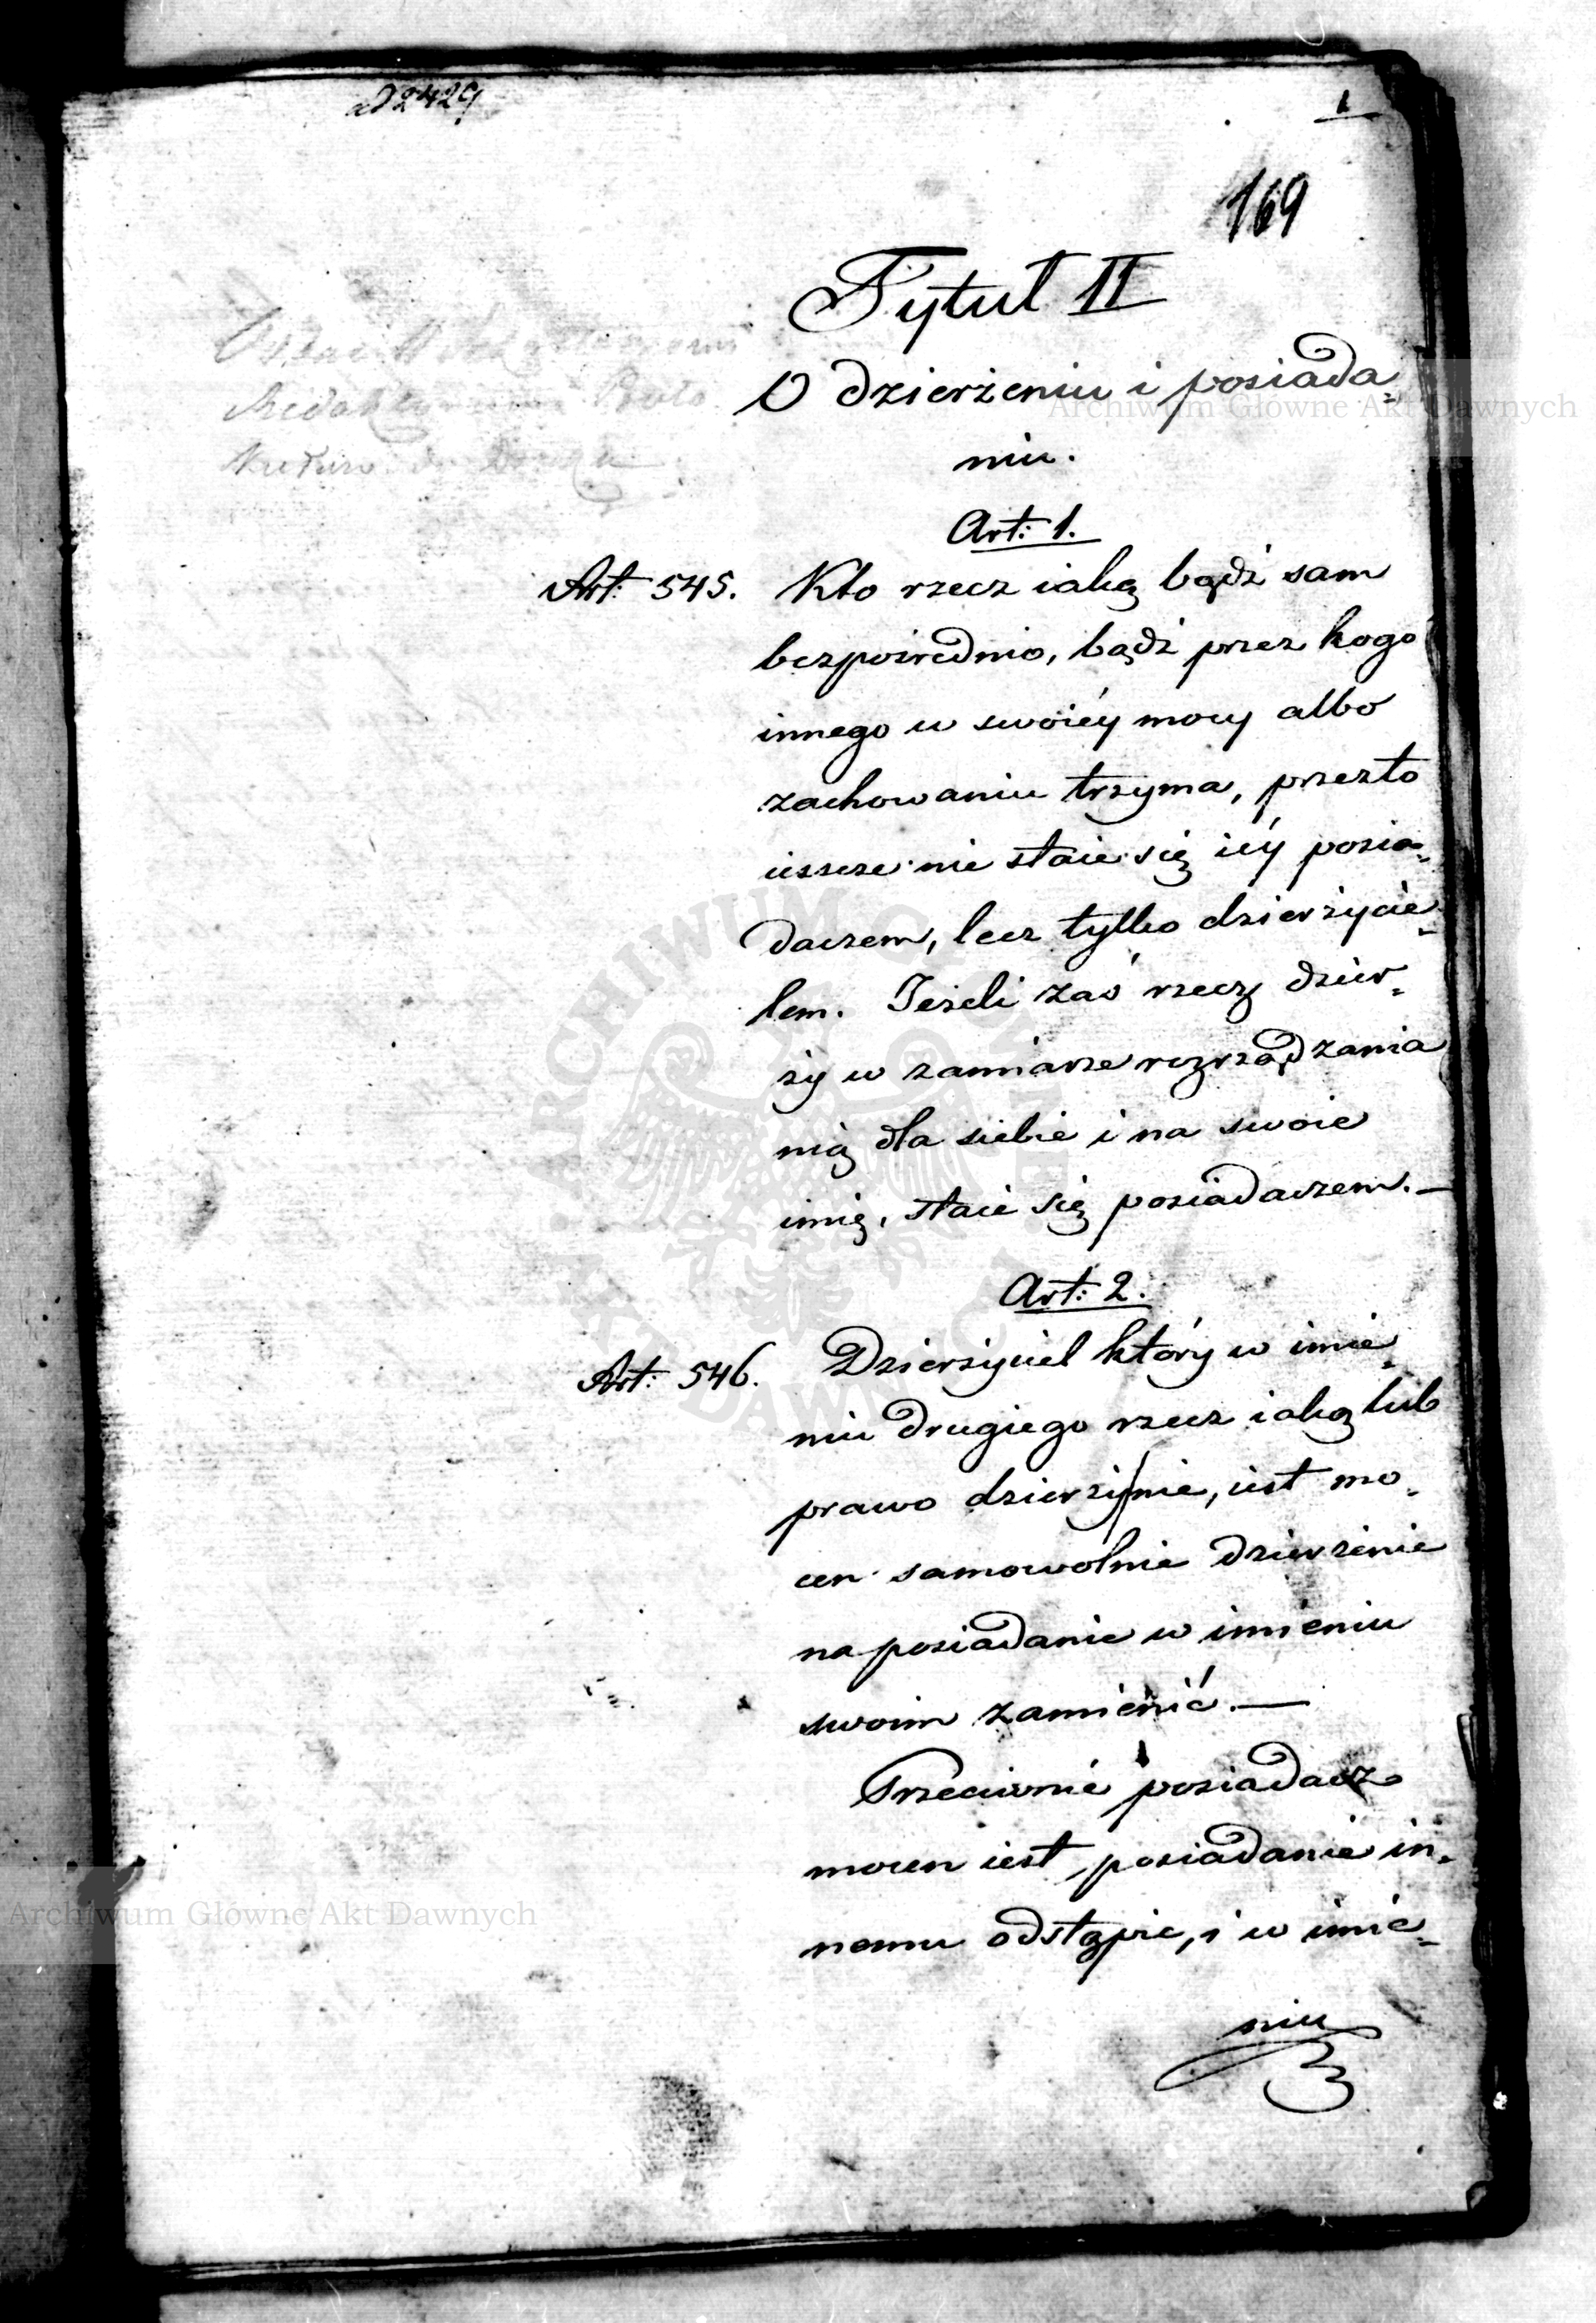 ad 2429
1
169
Tytuł II
O dzierżeniu i posiada=
niu.
Art: 1.
Art: 545. Kto rzecz iaką bądź sam
bezpośrednio, bądź przez kogo
innego w swoiéy mocy albo
zachowaniu trzyma, przezto
ieszcze nie staie się iéy posia=
daczem, lecz tylko dzierżycie=
lem. Jeżeli zaś rzecz dzier=
ży w zamiarze rozrządzania
nią dla siebie i na swoie
imię, staie się posiadaczem.—
Art: 2.
Art: 546. Dzierżyciel który w imie=
niu drugiego rzecz iaką lub
prawo dzierży, nie iest mo=
cen samowolnie dzierżenie
na posiadanie w imieniu
swoim zamienić.—
Przeciwnie posiadacz
mocen iest, posiadanie in=
nemu odstąpić, i w imie=
niu
Archiwum Główne Akt Dawnych
Archiwum Główne Akt Dawnych
ARCHIWUM GŁÓWNE AKT DAWNYCH